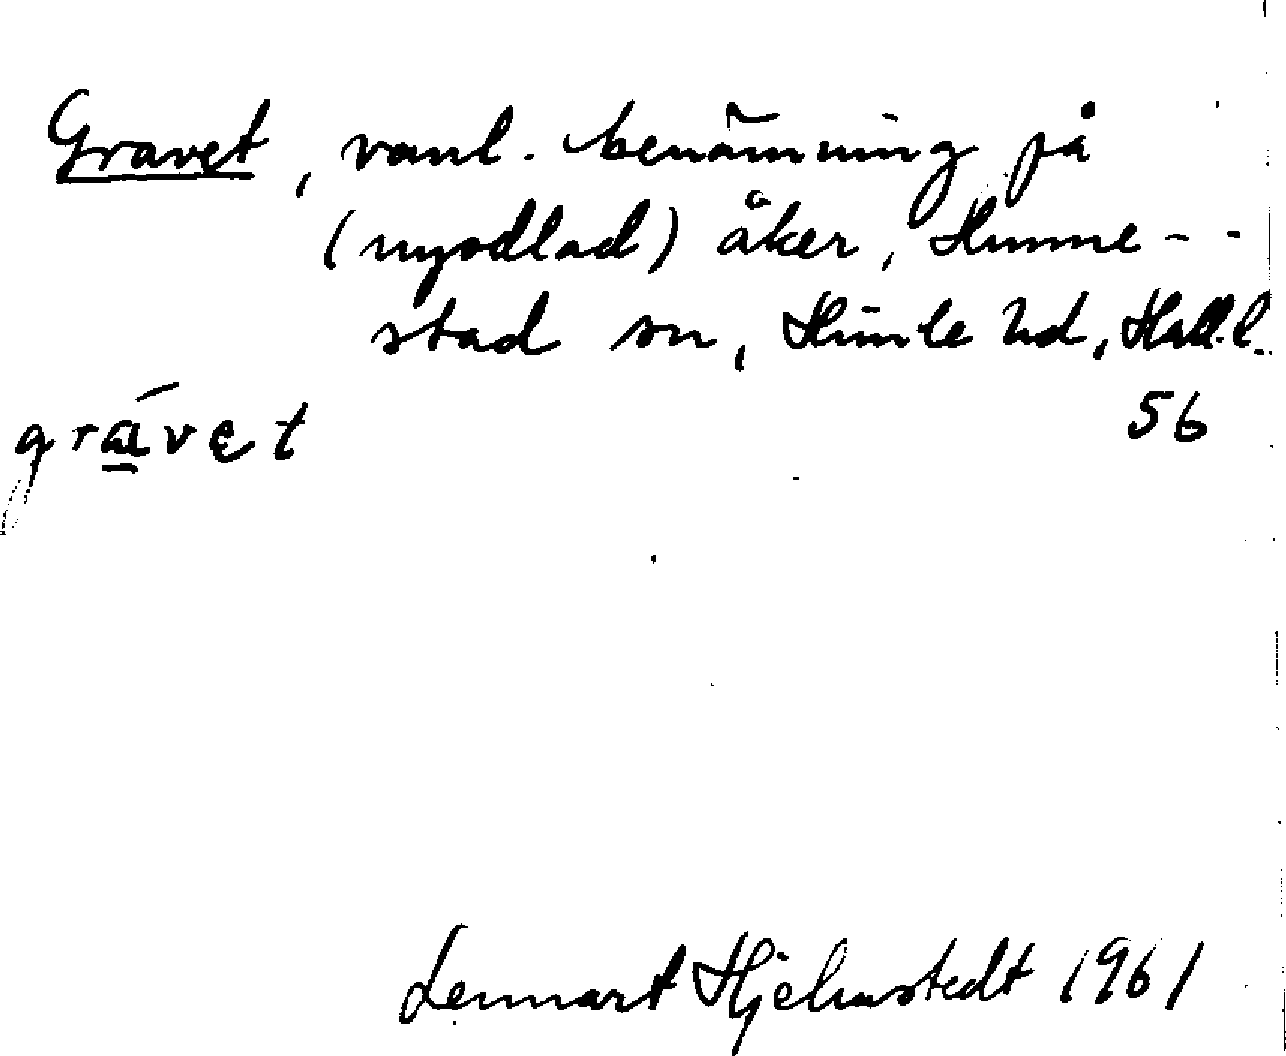 Gravet, vanl. benämning på
(nyodlad) åker, Hunne-
stad sn, Himle hd, Hall.l.
grávet 56
Lennart Hjelmstedt 1961